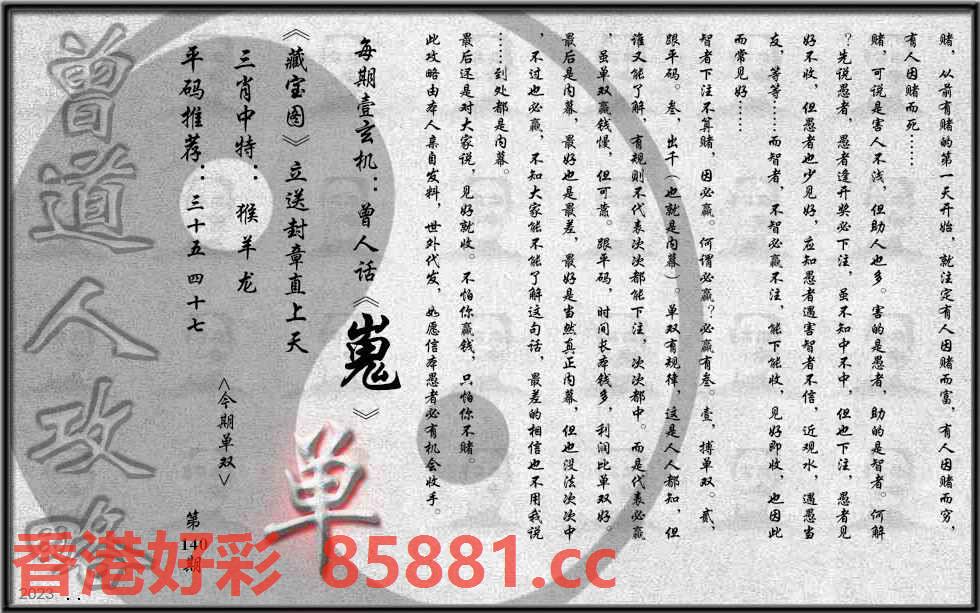 赌，从前有赌的第一天开始，就注定有人因赌而富，有人因赌而穷，
有人因赌而死……
赌，可说是害人不浅，但助人也多。害的是愚者，助的是智者。何解
？先说愚者，愚者逢开奖必下注，虽不知中不中，但也下注，愚者见
好不收，但愚者也少见好，应知愚者遇害智者不信，近观水，遇愚当
友，等等……而智者，不智必赢不注，能下能收，见好即收，也因此
而常见好……
智者下注不算赌，因必赢。何谓必赢？必赢有叁。壹，搏单双。贰，
跟平码。叁，出千（也就是内幕）。单双有规律，这是人人都知，但
谁又能了解，有规则不代表次次都能下注，次次都中。而是代表必赢
，虽单双赢钱慢，但可靠。跟平码，时间长本钱多，利润比单双好。
最后是内幕，最好也是最差，最好是当然真正内幕，但也没法次次中
，不过也必赢，不知大家能不能了解这句话，最差的相信也不用我说
……到处都是内幕。
最后还是对大家说，见好就收。不怕你赢钱，只怕你不赌。
此攻略由本人亲自发料，世外代发，如愿信本愚者必有机会收手。
每期壹玄机：曾人话《嵬》
《藏宝图》立送封章直上天
三肖中特：猴羊龙
平码推荐：三十五 四十七
<今期单双>
单
第
140
期
曾道人攻略
香港好彩 85881.cc
2023